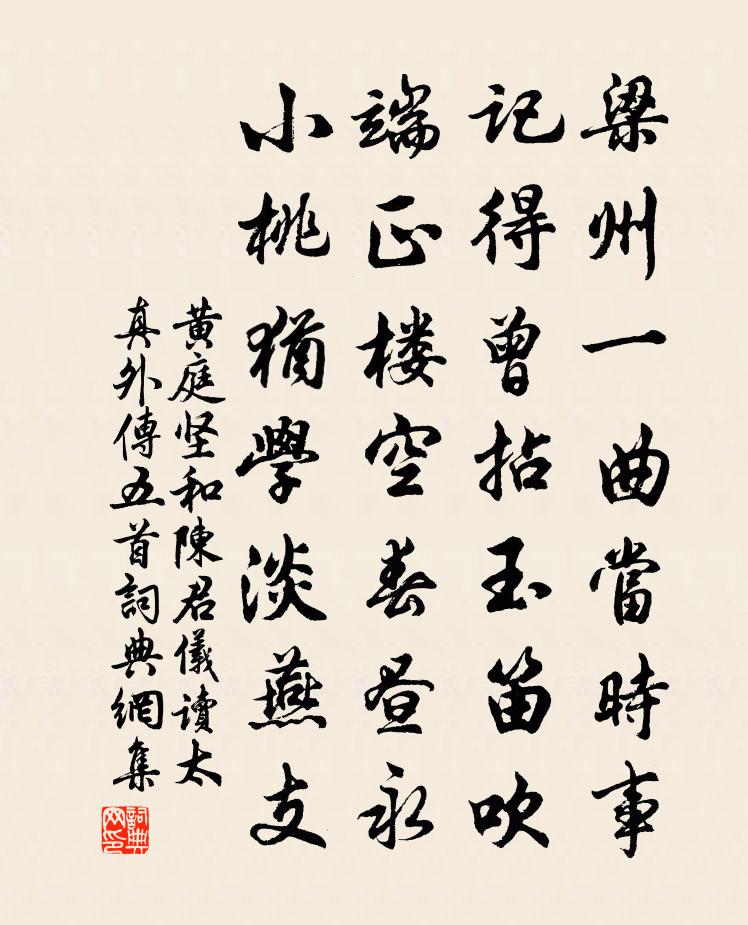 梁州一曲當時事
記得曾拈玉笛吹
端正楼空春昼永
小桃猶學淡燕支
黄庭坚和陳君儀讀太
真外傳五首詞典網集
詞典
网印